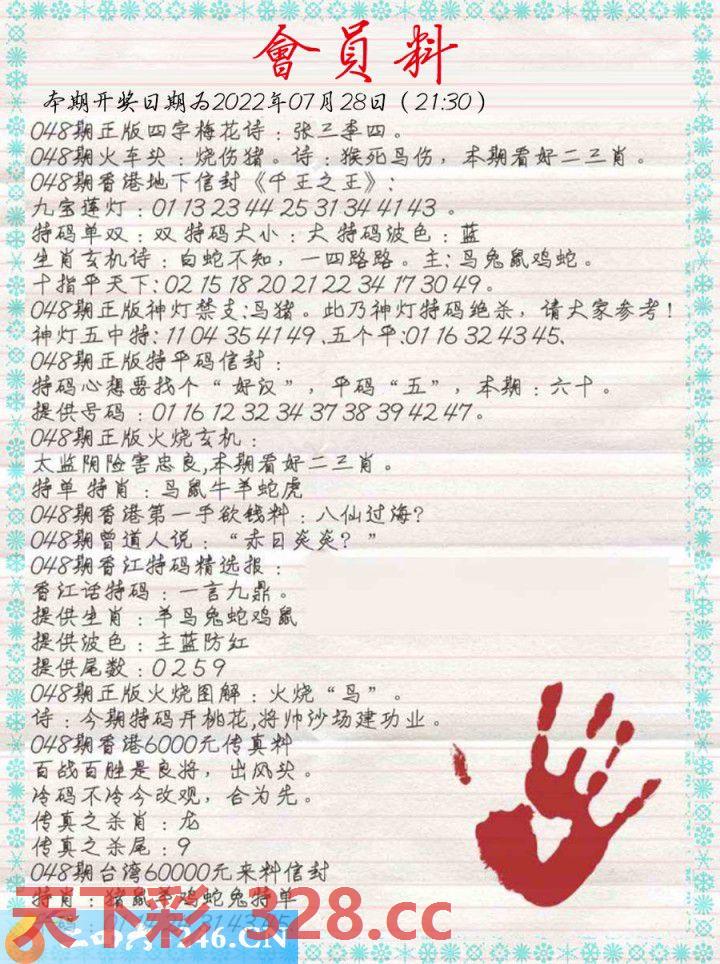 會員料
本期开奖日期为2022年07月28日（21:30）
048期正版四字梅花诗：张三李四。
048期火车头：烧伤猪。诗：猴死鸟伤，本期看好二三肖。
048期香港地下信封《千王之王》：
九宝莲灯：01 13 23 44 25 31 34 41 43 。
特码单双：双 特码大小：大 特码波色：蓝
生肖玄机诗：白蛇不知，一四路路。主：鸟兔鼠鸡蛇。
十指平天下：02 15 18 20 21 22 34 17 30 49。
048期正版神灯禁支：鸟猪。此乃神灯特码绝杀，请大家参考！
神灯五中特：11 04 35 41 49 、五个平：01 16 32 43 45、
048期正版特平码信封：
特码心想要找个“好汉”，平码“五”，本期：六十。
提供号码：01 16 12 32 34 37 38 39 42 47。
048期正版火烧玄机：
太监阴险害忠良,本期看好二三肖。
特单 特肖：鸟鼠牛羊蛇虎
048期香港第一手欲钱料：八仙过海？
048期曾道人说：“赤日炎炎？”
048期香江特码精选报：
香江话特码：一言九鼎。
提供生肖：羊鸟兔蛇鸡鼠
提供波色：主蓝防红
提供尾数：0 2 5 9
048期正版火烧图解：火烧“鸟”。
诗：今期特码开桃花,将帅沙场建功业。
048期香港6000元传真料
百战百胜是良将，出风头。
冷码不冷今改观，合为先。
传真之杀肖：龙
传真之杀尾：9
048期台湾60000元来料信封
特肖：猪鼠羊鸡蛇兔特单
天下彩 328.cc
246.CN